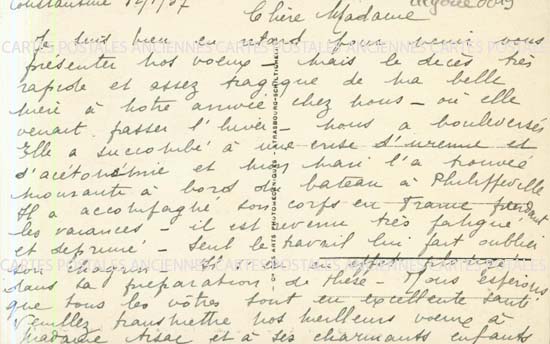 Constantine 12/1/37
Chère Madame
Je suis bien en retard pour venir vous
présenter nos voeux - mais le décès très
rapide et assez tragique de ma belle
mère à notre arrivée chez nous - où elle
venait passer l'hiver - nous a bouleversés
Elle a succombé à une crise d'urémie et
d'acétonémie et mon mari l'a trouvée
mourante à bord du bateau à Philippeville
Il a accompagné son corps en France pendant
les vacances - il est revenu très fatigué
et déprimé - Seul le travail lui fait oublier
son chagrin - Il est en effet plongé
dans sa préparation de thèse - Nous espérons
que tous les vôtres sont en excellente santé
Veuillez transmettre nos meilleurs voeux à
Madame et à ses charmants enfants
CARTES POSTALES ANCIENNES
ARTS PHOTOMECANIQUES - STRASBOURG-SCHILTIGHEIM